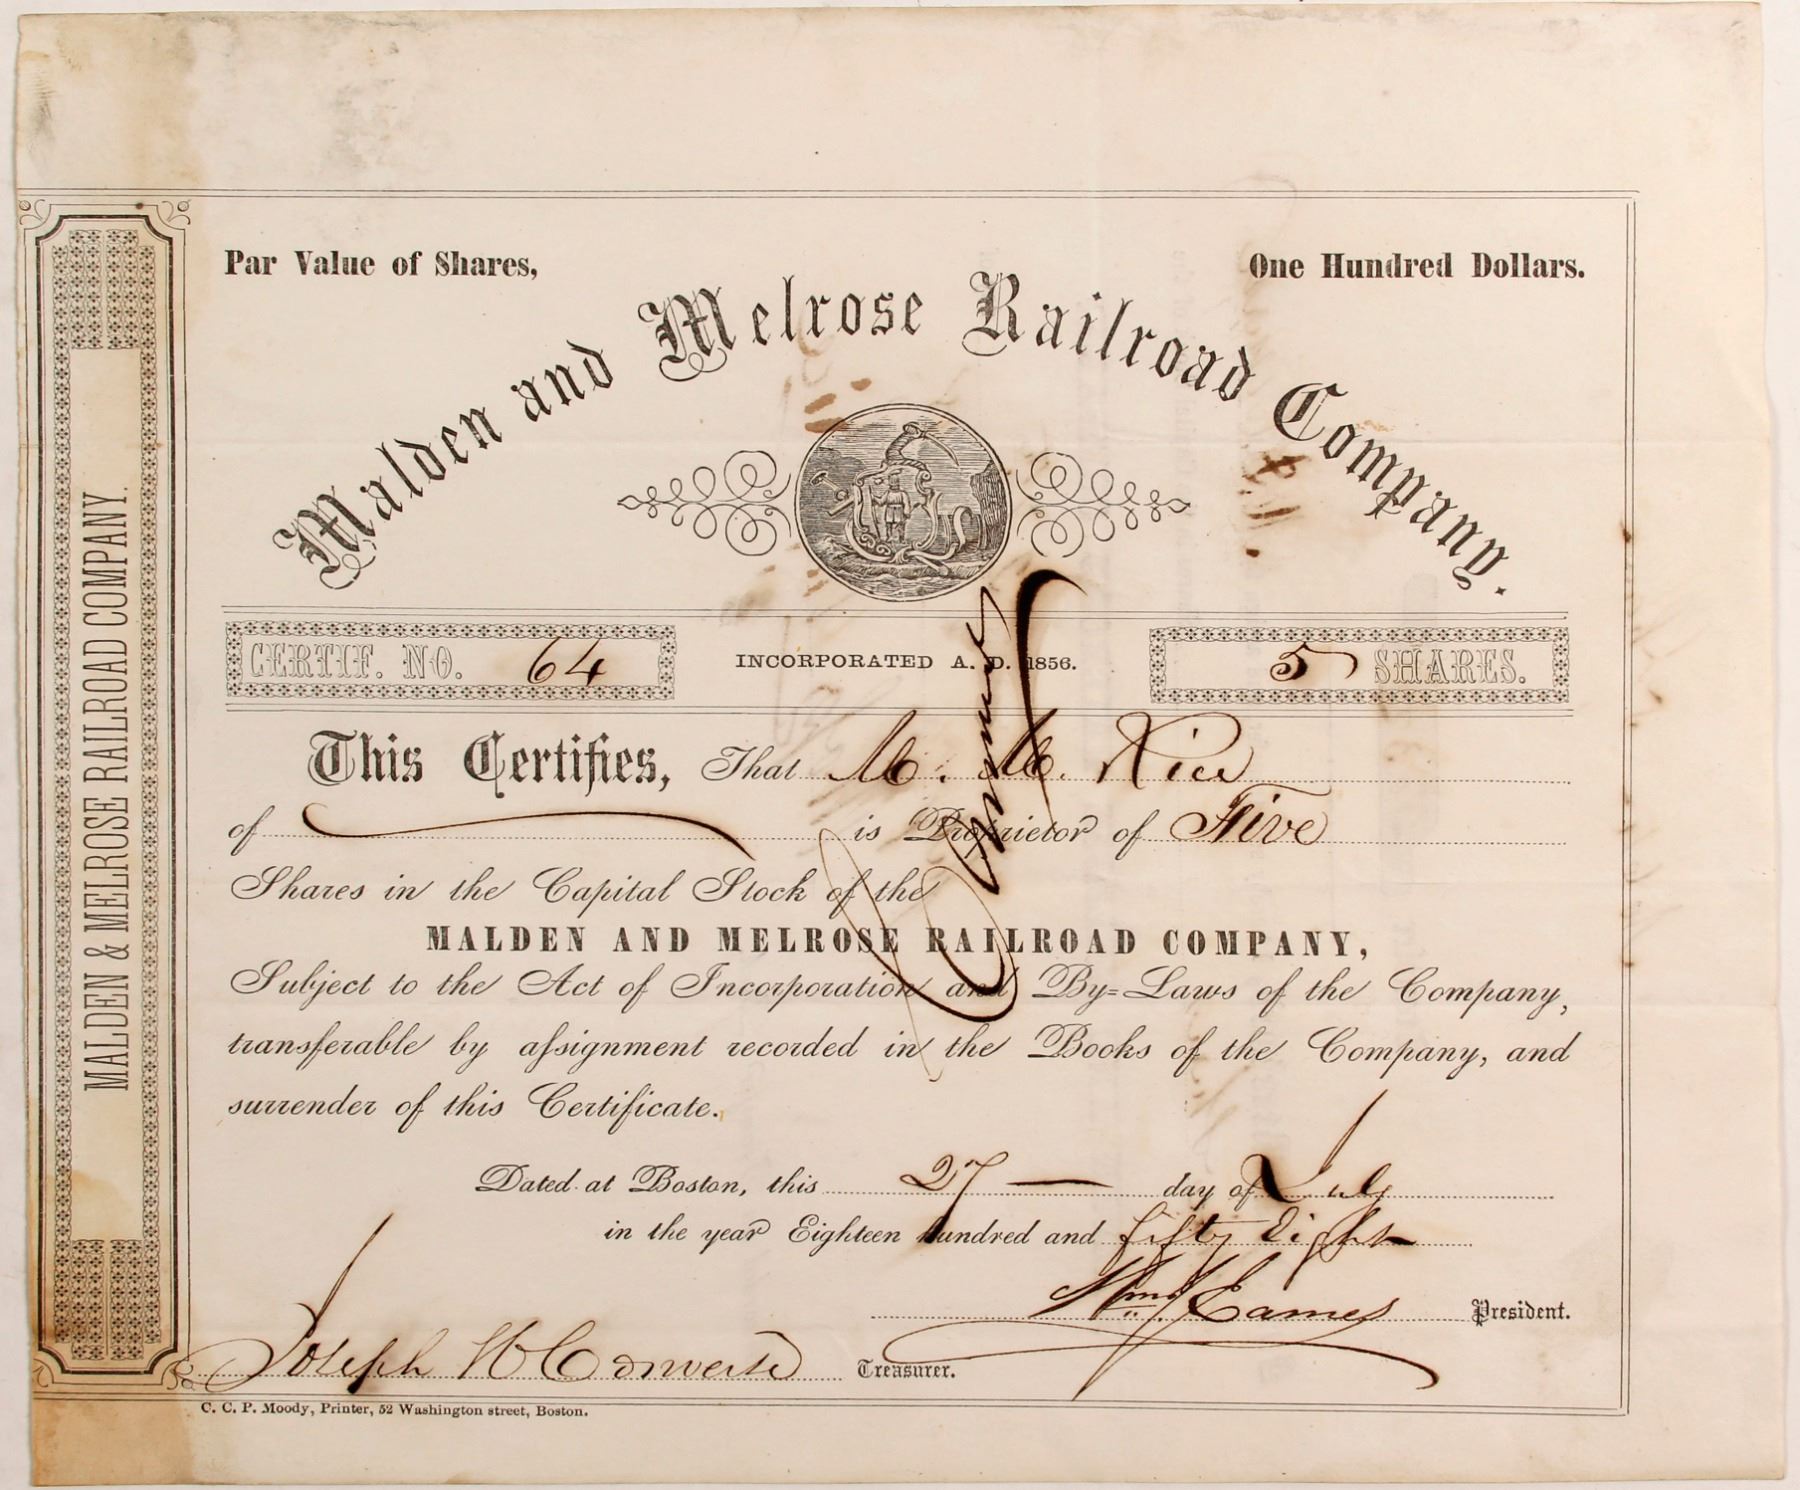 Par Value of Shares,
One Hundred Dollars.
Malden and Melrose Railroad Company.
CERTIF. NO. 64
INCORPORATED A. D. 1856.
5 SHARES.
This Certifies, That M. M. Rice
of is Proprietor of Five
Shares in the Capital Stock of the
MALDEN AND MELROSE RAILROAD COMPANY,
Subject to the Act of Incorporation and By=Laws of the Company,
transferable by assignment recorded in the Books of the Company, and
surrender of this Certificate.
Dated at Boston, this 27 day of July
in the year Eighteen hundred and fifty Eight
Wm. Eames President.
Joseph H Converse Treasurer.
C. C. P. Moody, Printer, 52 Washington street, Boston.
MALDEN & MELROSE RAILROAD COMPANY.